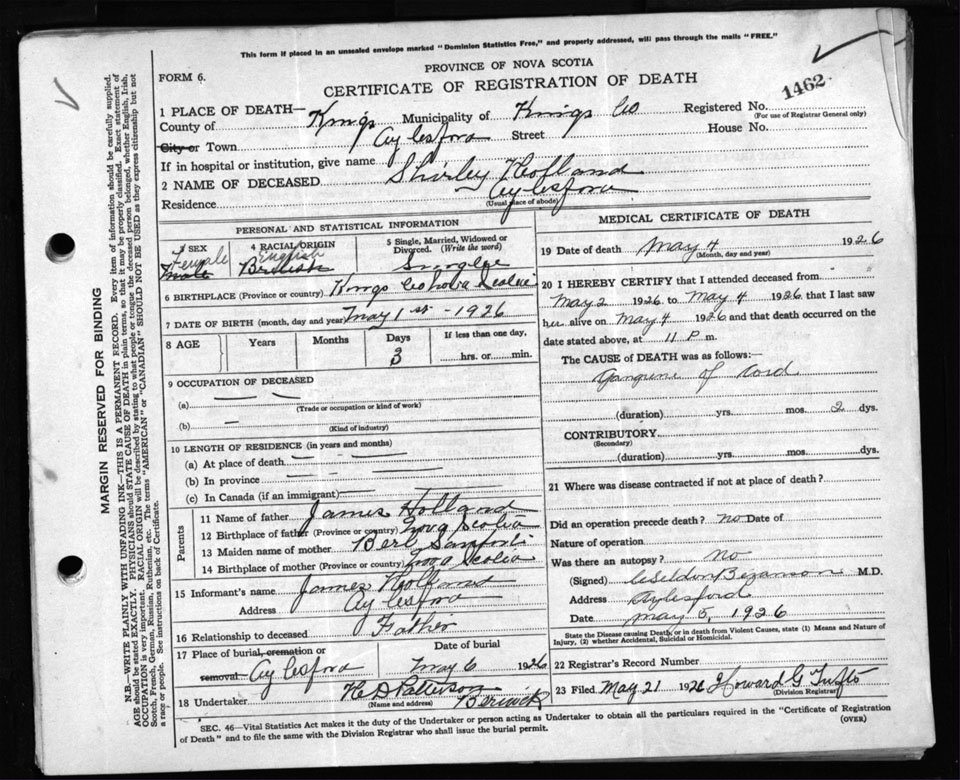 This form if placed in an unsealed envelope marked "Dominion Statistics Free," and properly addressed, will pass through the mails "FREE."
PROVINCE OF NOVA SCOTIA
FORM 6.
CERTIFICATE OF REGISTRATION OF DEATH
1462
1 PLACE OF DEATH—
County of Kings Municipality of Kings Co Registered No.
(For use of Registrar General only)
City or Town Aylesford Street House No.
If in hospital or institution, give name
2 NAME OF DECEASED Shirley Holland
Residence Aylesford
(Usual place of abode)
PERSONAL AND STATISTICAL INFORMATION
3 SEX Female Male
4 RACIAL ORIGIN English British
5 Single, Married, Widowed or Divorced. (Write the word) Single
6 BIRTHPLACE (Province or country) Kings Co Nova Scotia
7 DATE OF BIRTH (month, day and year) May 1st - 1926
8 AGE Years Months Days 3 If less than one day, hrs. or min.
9 OCCUPATION OF DECEASED
(a) — —
(Trade or occupation or kind of work)
(b) —
(Kind of industry)
10 LENGTH OF RESIDENCE (in years and months)
(a) At place of death — —
(b) In province — —
(c) In Canada (if an immigrant) — —
Parents
11 Name of father James Holland
12 Birthplace of father (Province or country) Nova Scotia
13 Maiden name of mother
14 Birthplace of mother (Province or country) Nova Scotia
15 Informant's name James Holland
Address Aylesford
16 Relationship to deceased Father
17 Place of burial, cremation or removal Aylesford
Date of burial May 6 1926
18 Undertaker H D Patterson Berwick
(Name and address)
MEDICAL CERTIFICATE OF DEATH
19 Date of death May 4 1926
(Month, day and year)
20 I HEREBY CERTIFY that I attended deceased from
May 2 1926 to May 4 1926, that I last saw
her alive on May 4 1926 and that death occurred on the
date stated above, at 11 P m.
The CAUSE of DEATH was as follows:—
Gangrene of Cord
(duration) yrs. mos. 2 dys.
CONTRIBUTORY
(Secondary)
(duration) yrs. mos. dys.
21 Where was disease contracted if not at place of death?
Did an operation precede death? no Date of
Nature of operation
Was there an autopsy? no
(Signed) Bezanson M.D.
Address Aylesford
Date May 5, 1926
State the Disease causing Death, or in death from Violent Causes, state (1) Means and Nature of
Injury, (2) whether Accidental, Suicidal or Homicidal.
22 Registrar's Record Number
23 Filed May 21 1926 Howard G Tufts
(Division Registrar)
SEC. 46—Vital Statistics Act makes it the duty of the Undertaker or person acting as Undertaker to obtain all the particulars required in the "Certificate of Registration
of Death" and to file the same with the Division Registrar who shall issue the burial permit.
(OVER)
MARGIN RESERVED FOR BINDING
N.B.—WRITE PLAINLY WITH UNFADING INK—THIS IS A PERMANENT RECORD. Every item of information should be carefully supplied.
AGE should be stated EXACTLY. PHYSICIANS should STATE CAUSE OF DEATH in plain terms, so that it may be properly classified. Exact statement of
OCCUPATION is very important. RACIAL ORIGIN will be described by stating to what people or tongue the deceased person belonged, whether English, Irish,
Scotch, French, German, Russian, Ruthenian, etc. The terms "AMERICAN" or "CANADIAN" SHOULD NOT BE USED as they express citizenship but not
a race or people. See instructions on back of Certificate.